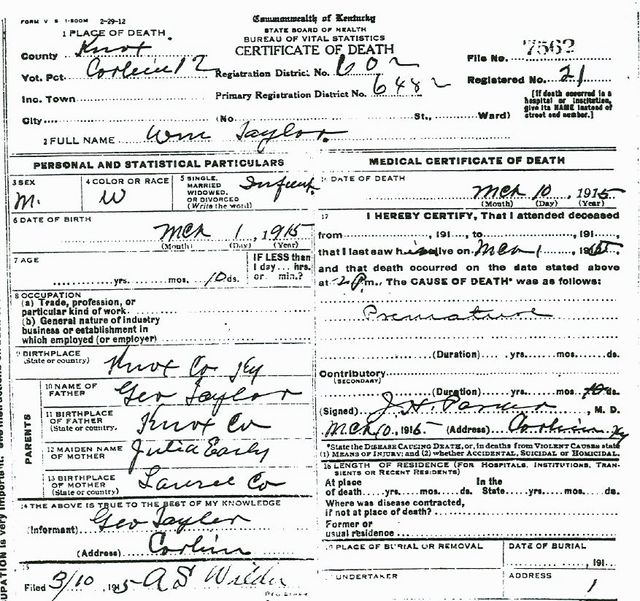 FORM V S 1-500M 2-29-12
Commonwealth of Kentucky
STATE BOARD OF HEALTH
BUREAU OF VITAL STATISTICS
CERTIFICATE OF DEATH
1 PLACE OF DEATH
County Knox
Vot. Pct. Corbin 12
Inc. Town
City (No. St., Ward)
Registration District No. 602
Primary Registration District No. 6482
File No. 7562
Registered No. 21
[If death occurred in a
hospital or institution,
give its NAME instead of
street and number.]
2 FULL NAME Wm Taylor
PERSONAL AND STATISTICAL PARTICULARS
3 SEX
M.
4 COLOR OR RACE
W
5 SINGLE,
MARRIED
WIDOWED,
OR DIVORCED
(Write the word)
Infant
6 DATE OF BIRTH
Mch 1, 1915
(Month) (Day) (Year)
7 AGE
yrs. mos. 10 ds.
IF LESS than
1 day... hrs.
or min.?
8 OCCUPATION
(a) Trade, profession, or
particular kind of work
(b) General nature of industry
business or establishment in
which employed (or employer)
9 BIRTHPLACE
(State or country)
Knox Co Ky
PARENTS
10 NAME OF
FATHER
Geo Taylor
11 BIRTHPLACE
OF FATHER
(State or country.
Knox Co
12 MAIDEN NAME
OF MOTHER
Julia Early
13 BIRTHPLACE
OF MOTHER
(State or country)
Laurel Co
14 THE ABOVE IS TRUE TO THE BEST OF MY KNOWLEDGE
(Informant) Geo Taylor
(Address) Corbin
Filed 3/10 1915 A S Wilder
MEDICAL CERTIFICATE OF DEATH
DATE OF DEATH
Mch 10, 1915
(Month) (Day) (Year)
17 I HEREBY CERTIFY, That I attended deceased
from , 191 , to , 191 ,
that I last saw him alive on Mch 1, 1915,
and that death occurred on the date stated above
at 2 P m., The CAUSE OF DEATH* was as follows:
Premature
(Duration) yrs. mos. ds.
Contributory
(SECONDARY)
(Duration) yrs. mos. ds.
(Signed) J. H. Parker M. D.
Mch 10, 1915 (Address) Corbin Ky
*State the DISEASE CAUSING DEATH, or, in deaths from VIOLENT CAUSES state
(1) MEANS OF INJURY; and (2) whether ACCIDENTAL, SUICIDAL or HOMICIDAL
18 LENGTH OF RESIDENCE (FOR HOSPITALS, INSTITUTIONS, TRAN-
SIENTS OR RECENT RESIDENTS)
At place
of death yrs. mos. ds.
In the
State, yrs. mos. ds.
Where was disease contracted,
if not at place of death?
Former or
usual residence
PLACE OF BURIAL OR REMOVAL
DATE OF BURIAL
, 191
UNDERTAKER
ADDRESS
UPATION is very important.